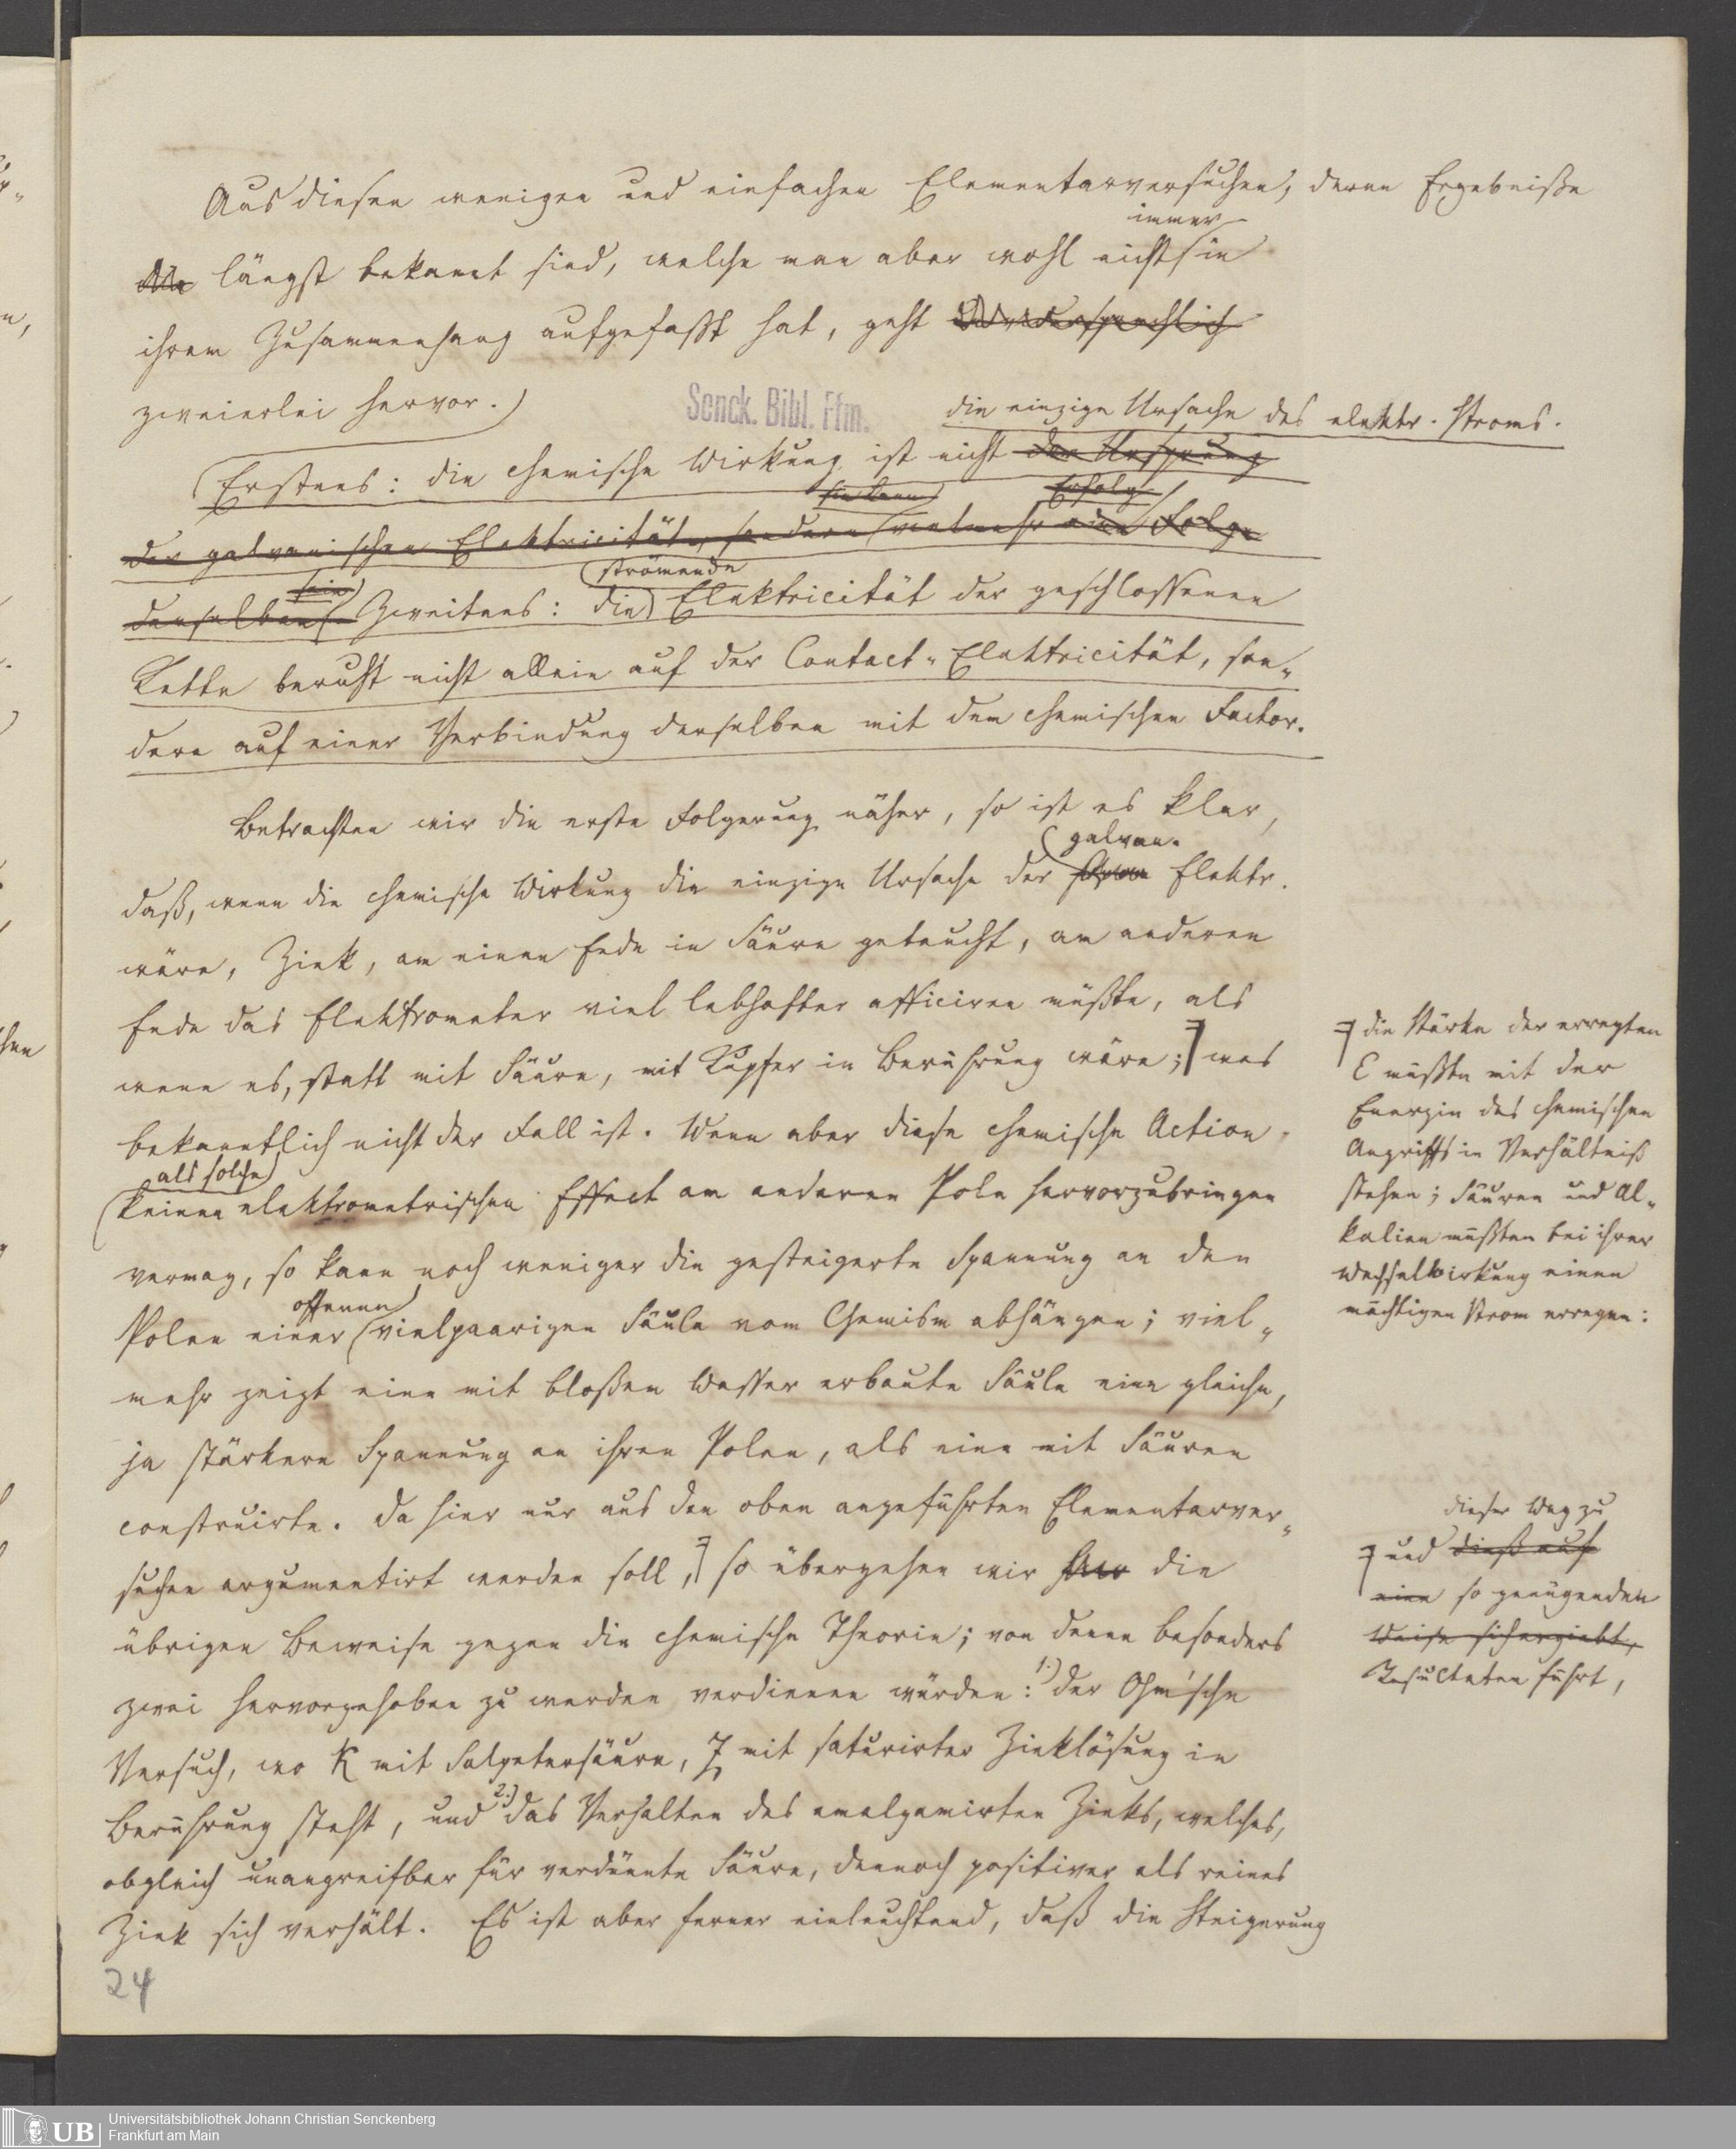 Aus diesen wenigen und einfachen Elementarversuchen, deren Ergebniße
immer
längst bekannt sind, welche man aber wohl nicht in
ihrem Zusammenhang aufgefaßt hat, geht unwidersprechlich
zweierlei hervor.
Senck. Bibl. Ffm.
die einzige Ursache des elektr. Stroms.
Erstens: die chemische Wirkung ist nicht der Ursprung
Erfolg
der galvanischen Elektricität, sondern vielmehr eine Folge
sein strömende
derselben. Zweitens: die Elektricität der geschlossenen
Kette beruht nicht allein auf der Contact-Elektricität, son-
dern auf einer Verbindung derselben mit dem chemischen Factor.
Betrachten wir die erste Folgerung näher, so ist es klar,
galvan.
daß, wenn die chemische Wirkung die einzige Ursache der Elektr.
wäre, Zink, am einen Ende in Säure getaucht, am anderen
Ende das Elektrometer viel lebhafter afficiren müßte, als
wenn es, statt mit Säure, mit Kupfer in Berührung wäre; was
bekanntlich nicht der Fall ist. Wenn aber diese chemische Action
als solche
keinen elektrometrischen Effect am anderen Pole hervorzubringen
vermag, so kann noch weniger die gesteigerte Spannung an den
offenen
Polen einer vielpaarigen Säule vom Chemism abhängen; viel-
mehr zeigt eine mit bloßem Wasser erbaute Säule eine gleiche,
ja stärkere Spannung an ihren Polen, als eine mit Säuren
construirte. Da hier nur aus den oben angeführten Elementarver-
suchen argumentirt werden soll, so übergehen wir die
übrigen Beweise gegen die chemische Theorie; von denen besonders
zwei hervorgehoben zu werden verdienen würden: 1.) der Ohm'sche
Versuch, wo K mit Salpetersäure, Z mit saturirter Zinklösung in
Berührung steht, und 2.) das Verhalten des amalgamirten Zinks, welches,
obgleich unangreifbar für verdünnte Säure, dennoch positiver als reines
Zink sich verhält. Es ist aber ferner einleuchtend, daß die Steigerung
24
die Stärke der erregten
E müßte mit der
Energie des chemischen
Angriffs in Verhältniß
stehen; Säuren und Al-
kalien müßten bei ihrer
Wechselwirkung einen
mächtigen Strom erregen:
dieser Weg zu
und dieß auf
eine so genügenden
Weise sich ergiebt,
Resultaten führt,
UB
Universitätsbibliothek Johann Christian Senckenberg
Frankfurt am Main